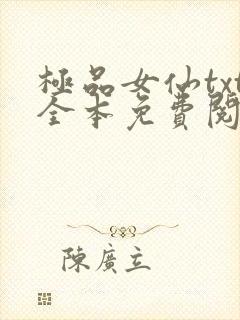 極品女仙txt
全本免費閱
陳廣立